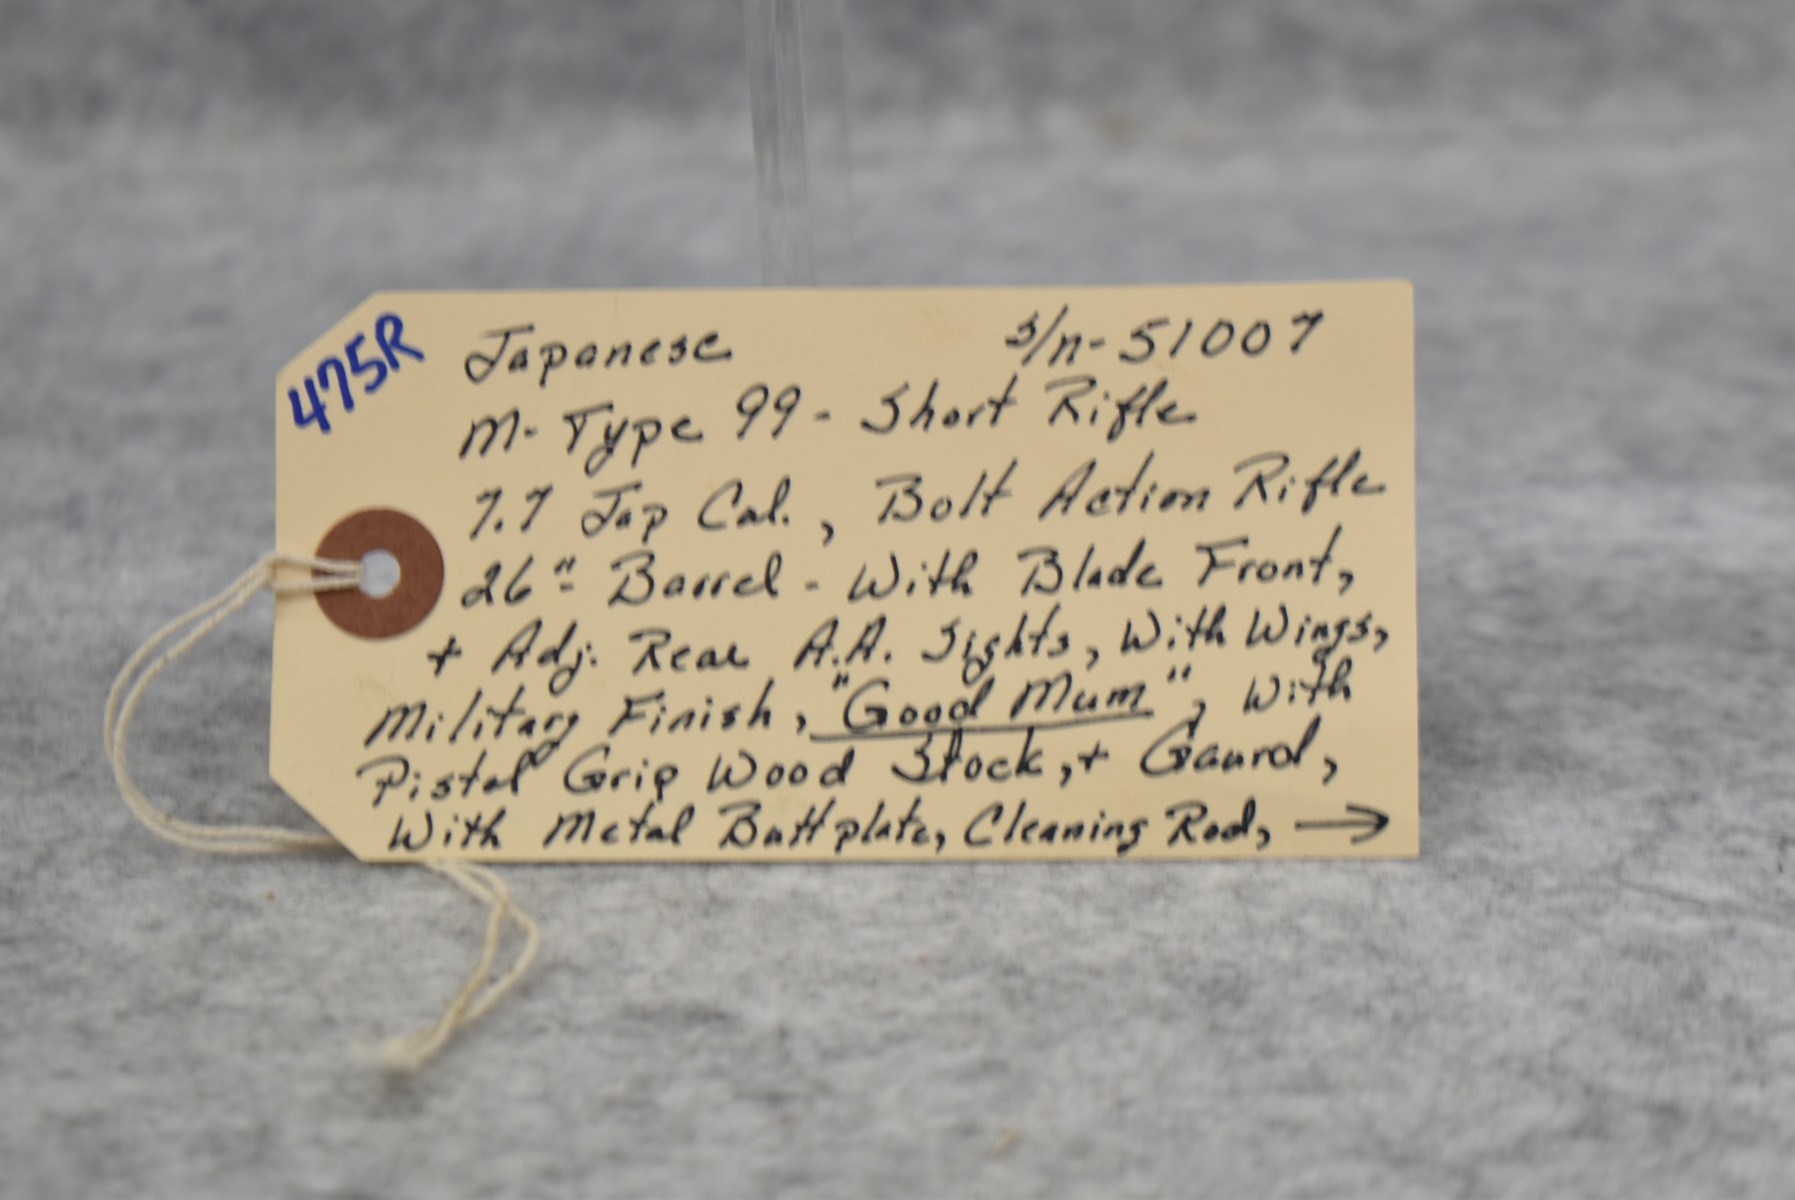 475R
Japanese s/n-51007
M-Type 99 - Short Rifle
7.7 Jap Cal., Bolt Action Rifle
26"- Barrel - With Blade Front,
+ Adj. Rear A.A. Sights, With Wings,
Military Finish, "Good Mum", With
Pistol Grip Wood Stock, + Gaurd,
With Metal Buttplate, Cleaning Rod, →